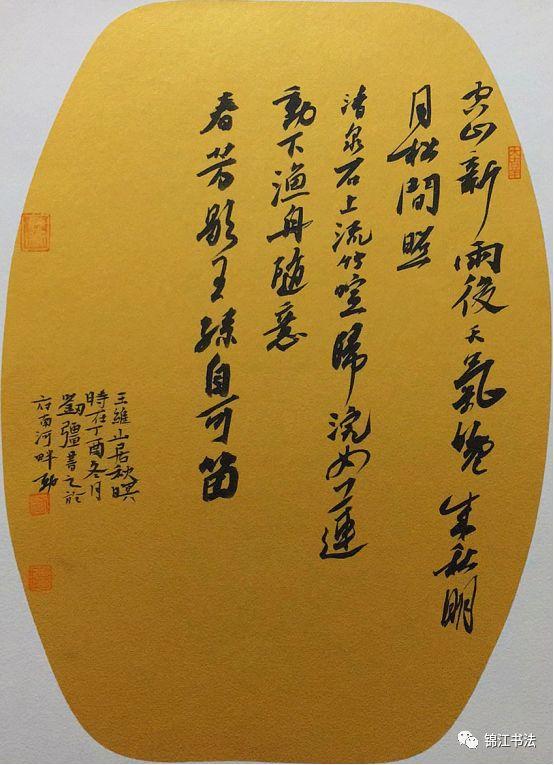 空山新雨後天氣晚来秋明
月松間照
清泉石上流竹喧歸浣女蓮
動下漁舟随意
春芳歇王孫自可留
王維山居秋暝
時在丁酉冬月
劉彊書之於
府南河畔
锦江书法